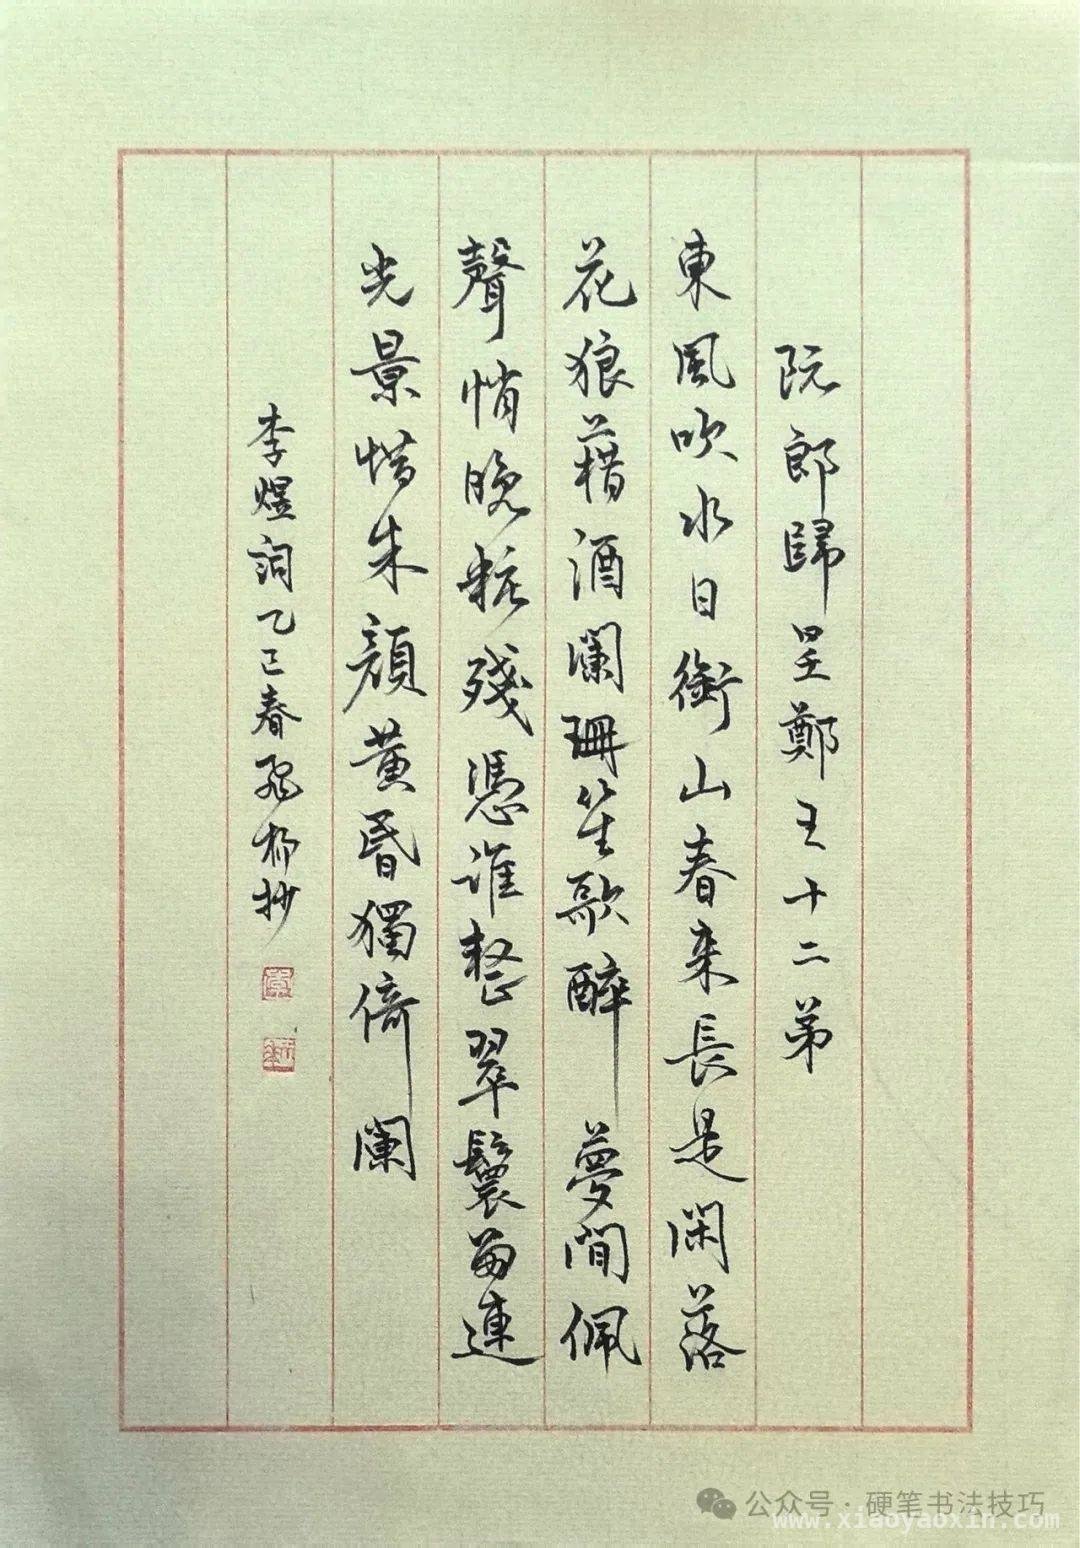 阮郎歸呈鄭王十二弟
東風吹水日銜山春来長是閑落
花狼藉酒闌珊笙歌醉夢間佩
聲悄晚粧殘憑誰整翠鬟留連
光景惜朱顏黃昏獨倚闌
李煜詞乙巳春 柳抄
公众号·硬笔书法技巧
www.xiaoyaoxin.com